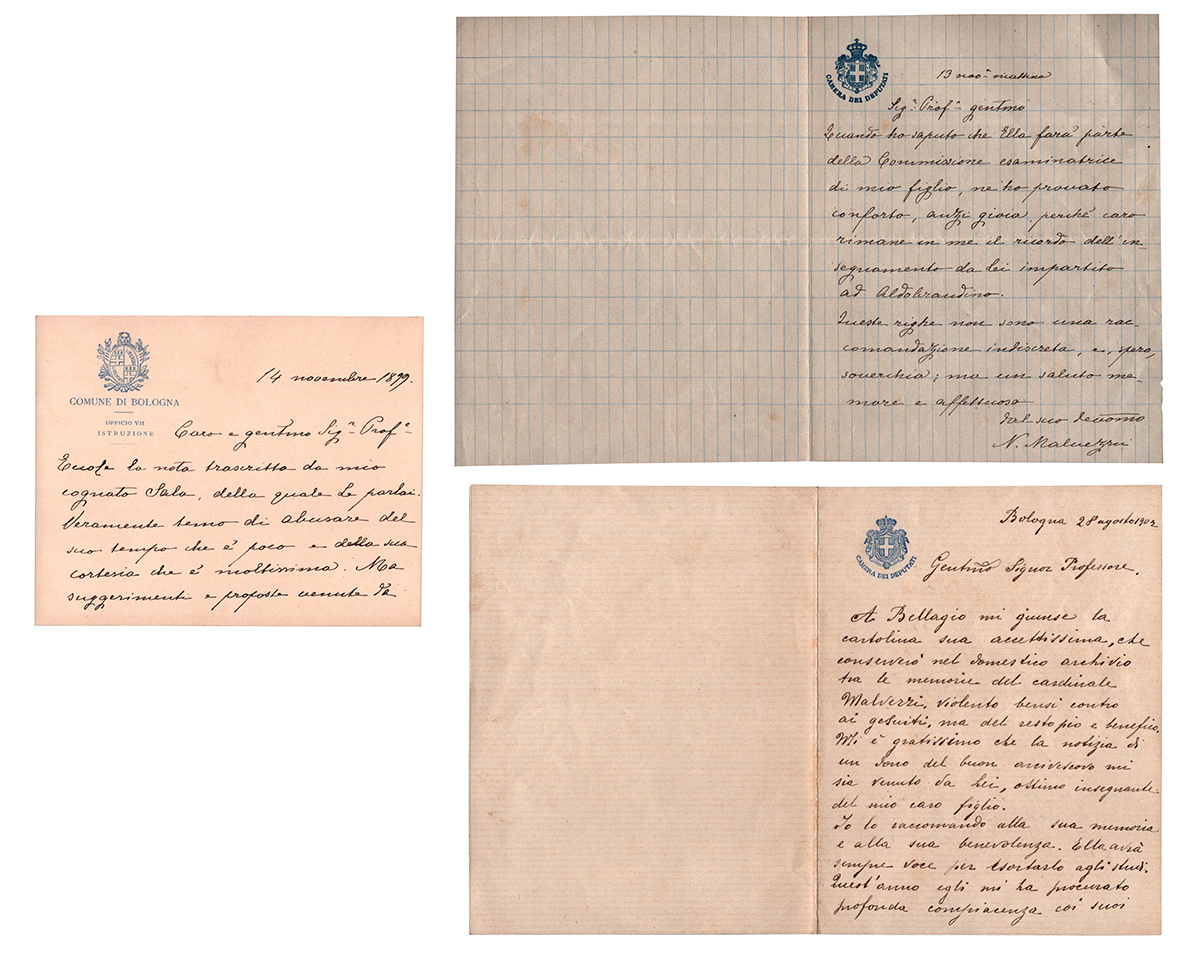 COMUNE DI BOLOGNA
UFFICIO VII
ISTRUZIONE
14 novembre 1899.
Caro e gentmo Sigr Profr
Eccole la nota trascritta da mio
cognato Sala, della quale Le parlai.
Veramente temo di abusare del
suo tempo che è poco e della sua
cortesia che è moltissima. Ma
suggerimenti e proposte venute da
CAMERA DEI DEPUTATI
13 mattina
Sigr Profr gentmo
Quando ho saputo che Ella farà parte
della Commissione esaminatrice
di mio figlio, ne ho provato
conforto, anzi gioia, perchè caro
rimane in me il ricordo dell'in-
segnamento da Lei impartito
ad Aldobrandino.
Queste righe non sono una rac-
comandazione indiscreta, e, spero,
soverchia; ma un saluto me-
more e affettuoso
dal suo devomo
N. Malvezzi
CAMERA DEI DEPUTATI
Bologna 28 agosto
Gentmo Signor Professore,
A Bellagio mi giunse la
cartolina sua accettissima, che
conserverò nel domestico archivio
tra le memorie del cardinale
Malvezzi, violento bensì contro
ai gesuiti, ma del resto pio e benefico.
Mi è gratissimo che la notizia di
un dono del buon arcivescovo mi
sia venuto da Lei, ottimo insegnante
del mio caro figlio.
Io lo raccomando alla sua memoria
e alla sua benevolenza. Ella avrà
sempre voce per esortarlo agli studi.
Quest'anno egli mi ha procurato
profonda compiacenza coi suoi